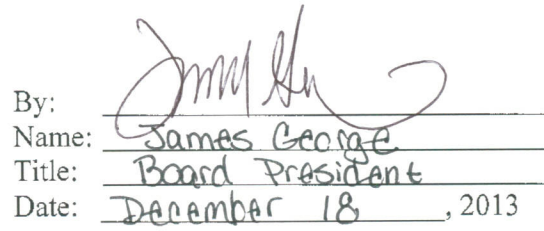 By:
Name: James George
Title: Board President
Date: December 18, 2013